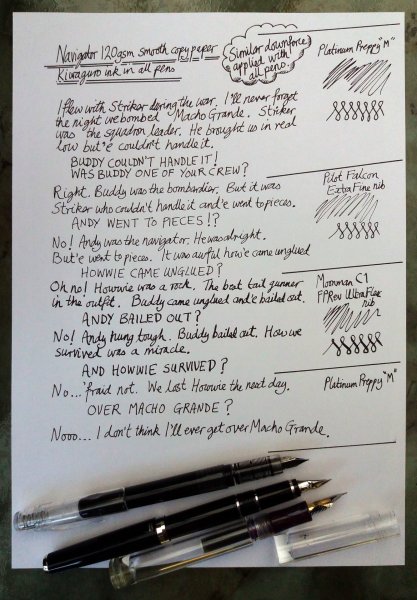 Navigator 120gsm smooth copy paper
Kiwaguro ink in all pens
Similar downforce
applied with
all pens.
Platinum Preppy "M"
I flew with Striker during the war. I'll never forget
the night we bombed Macho Grande. Striker
was the squadron leader. He brought us in real
low but 'e couldn't handle it.
BUDDY COULDN'T HANDLE IT!
WAS BUDDY ONE OF YOUR CREW?
Pilot Falcon
Extra Fine nib
Right. Buddy was the bombardier. But it was
Striker who couldn't handle it and 'e went to pieces.
ANDY WENT TO PIECES!?
No! Andy was the navigator. He was alright.
But 'e went to pieces. It was awful how 'e came unglued
HOWWIE CAME UNGLUED?
Moonman C1
FPRev UltraFlex
nib
Oh no! Howwie was a rock. The best tail gunner
in the outfit. Buddy came unglued and 'e bailed out.
ANDY BAILED OUT?
No! Andy hung tough. Buddy bailed out. How we
survived was a miracle.
AND HOWWIE SURVIVED?
Platinum Preppy "M"
No...'fraid not. We lost Howwie the next day.
OVER MACHO GRANDE?
Nooo... I don't think I'll ever get over Macho Grande.